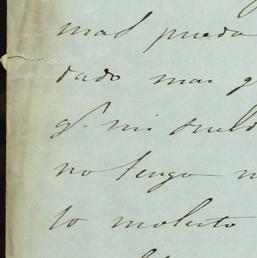 mas pueda
dado mas q
q.e mi sueld
no tengo n
to molesto